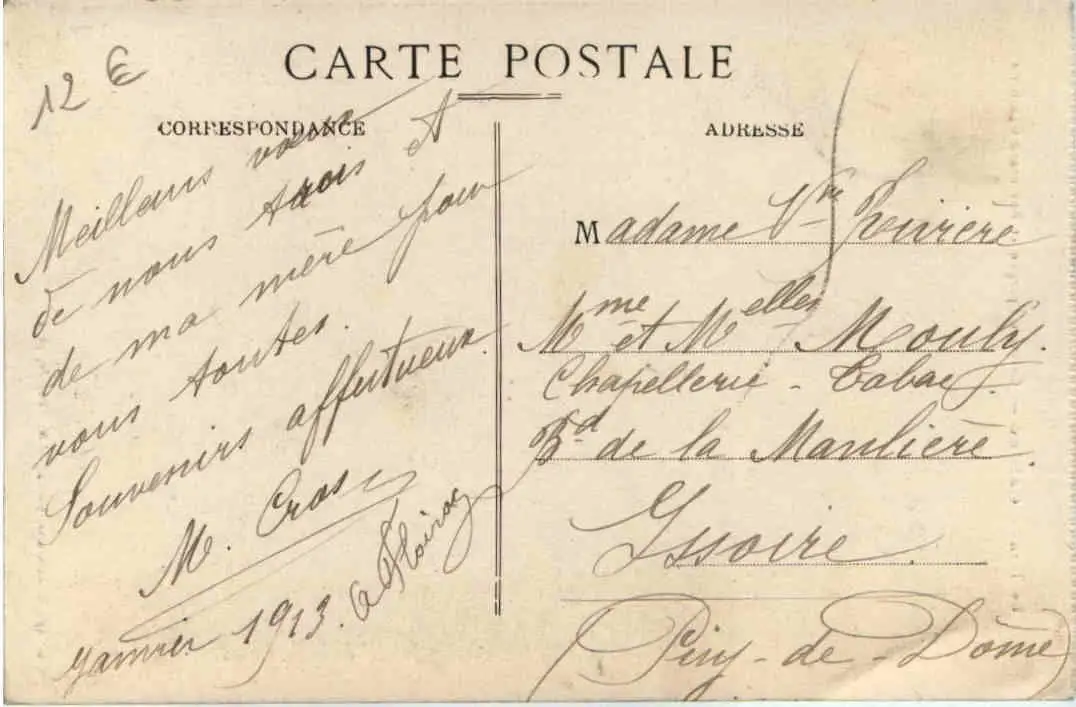 12 €
CARTE POSTALE
CORRESPONDANCE
Meilleurs vœux
de nous trois et
de ma mère pour
vous toutes.
Souvenirs affectueux.
M. Cros
Janvier 1913. à Floirac
ADRESSE
Madame Vve
Mme et Melles Mouly.
Chapellerie - Tabac
Bd de la Manlière
Issoire
(Puy-de-Dôme)